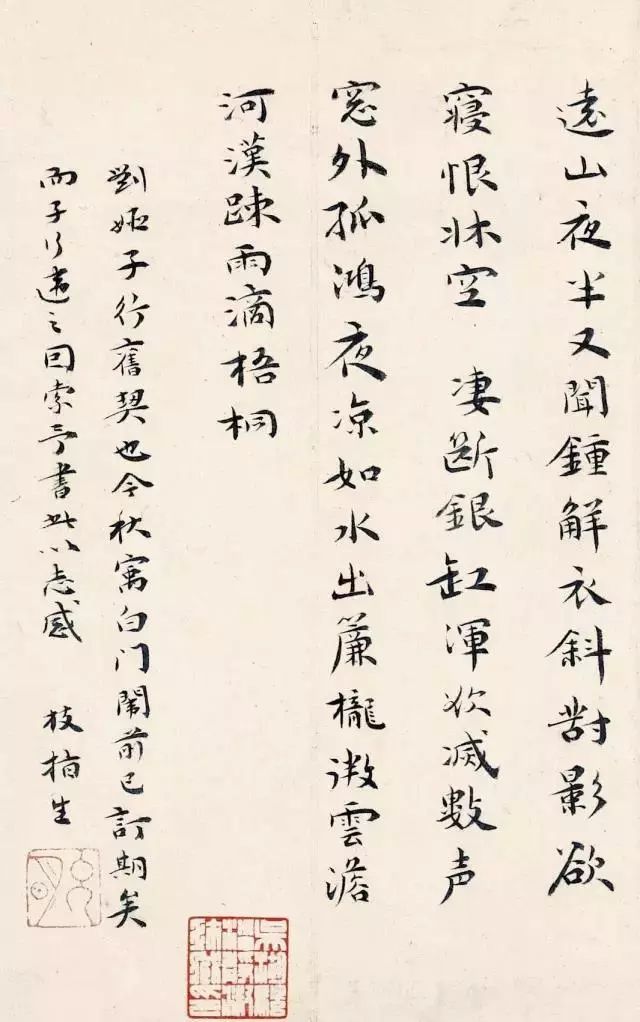 遠山夜半又聞鍾解衣斜對影欲
寢恨牀空 凄斷銀缸渾欲滅數声
窓外孤鴻夜凉如水出簾櫳微雲澹
河漢踈雨滴梧桐
劉姬子行舊契也今秋寓白门閙前已訂期矣
而子行違之回索予書此以志感 枝指生